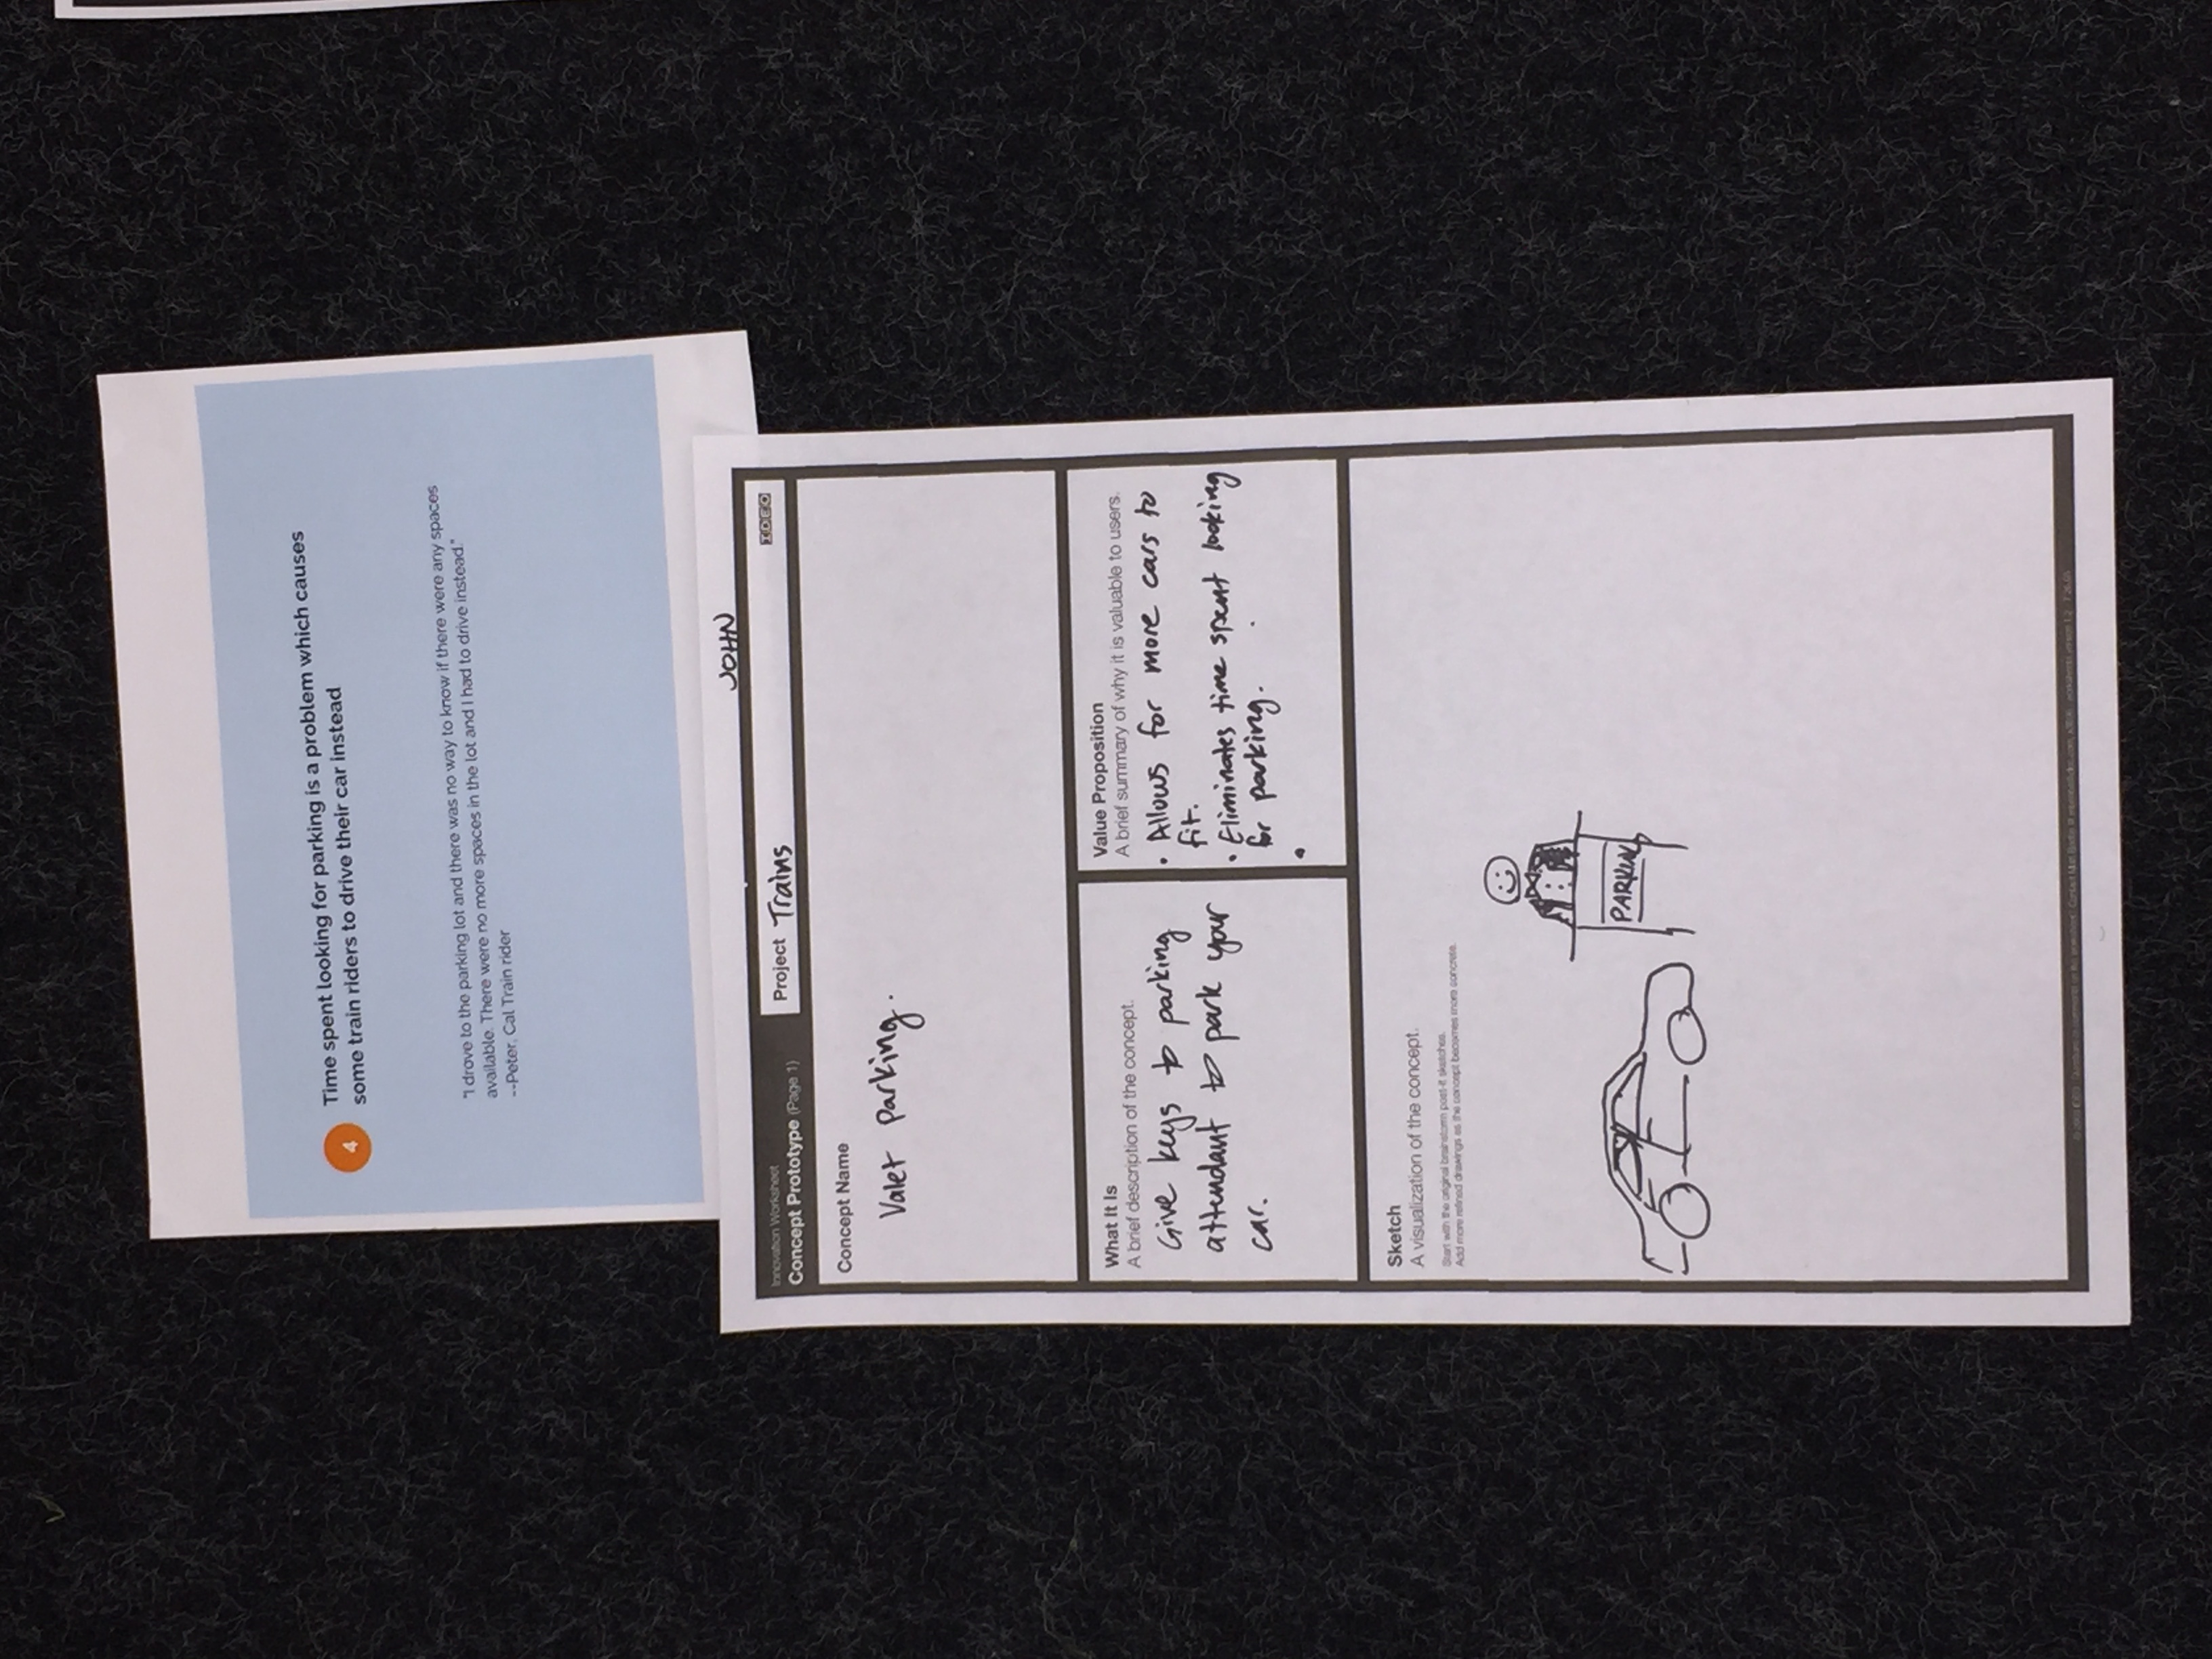 4
Time spent looking for parking is a problem which causes
some train riders to drive their car instead
"I drove to the parking lot and there was no way to know if there were any spaces
available. There were no more spaces in the lot and I had to drive instead."
--Peter, Cal Train rider
JOHN
Innovation Worksheet
Concept Prototype (Page 1)
Project Trains
IDEO
Concept Name
Valet parking.
What It Is
A brief description of the concept.
Give keys to parking
attendant to park your
car.
Value Proposition
A brief summary of why it is valuable to users.
• Allows for more cars to
fit.
• Eliminates time spent looking
for parking.
•
Sketch
A visualization of the concept.
Start with the original brainstorm post-it sketches.
Add more refined drawings as the concept becomes more concrete.
PARKING